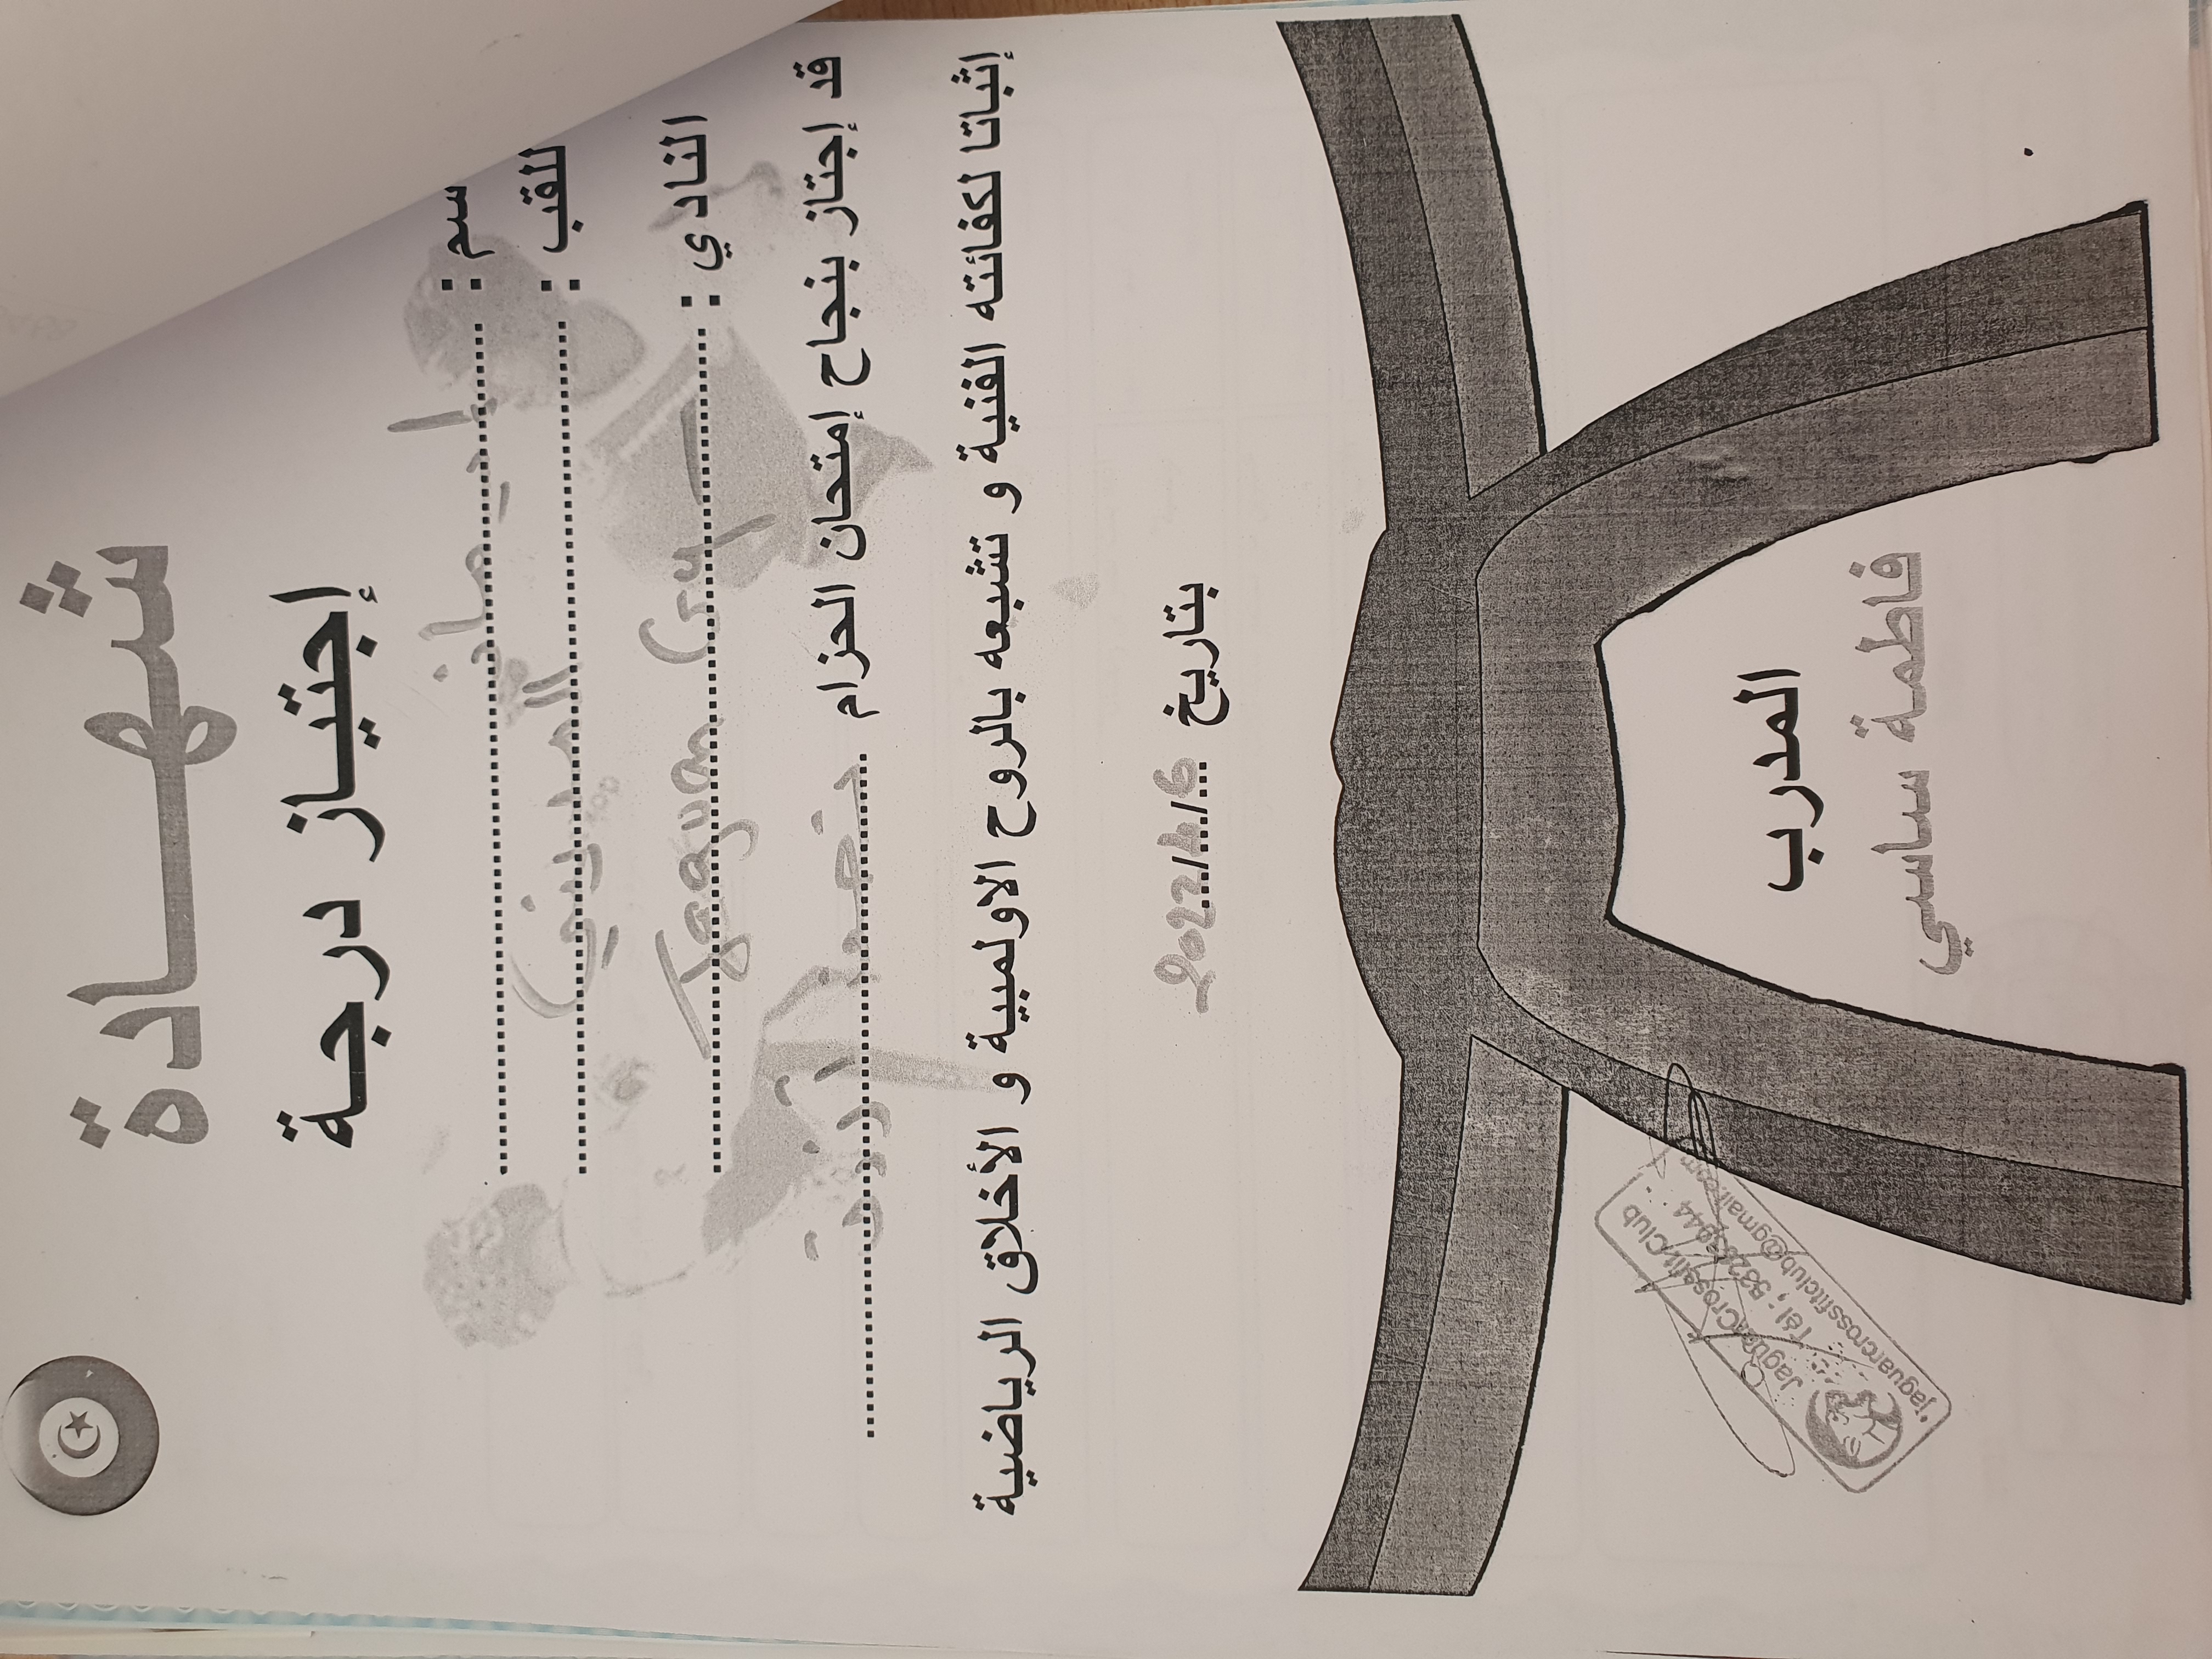 شهادة
إجتياز درجة
سم :
للقب :
النادي : Jaguar
قد إجتاز بنجاح إمتحان الحزام
إثباتا لكفائته الفنية و تشبعه بالروح الاولمبية و الأخلاق الرياضية
بتاريخ
المدرب
فاطمة ساسي
Jaguar Crossfit Club
jaguarcrossfitclub@gmail.com